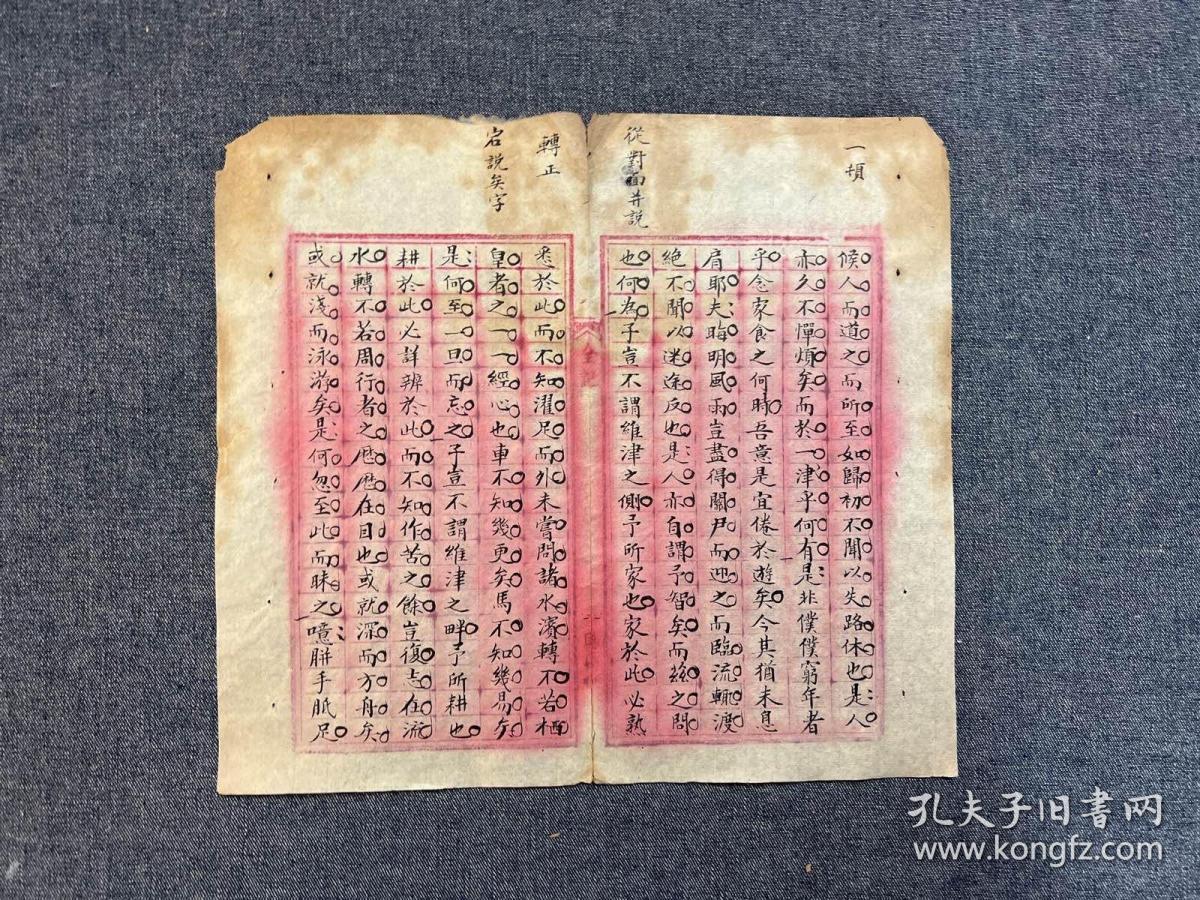 一頓
候人而道之而所至如歸初不聞以失路休也是人
亦久不憚煩矣而於一津乎何有是非僕僕窮年者
乎念家食之何時吾意是宜倦於遊矣今其猶未息
肩耶夫晦明風雨豈盡得關尹而迎之而臨流輒渡
絕不聞以迷途反也是人亦自謂予智矣而茲之問
從對面并說
也何為乎豈不謂維津之側予所家也家於此必熟
轉正
悉於此而不知濯足而外未嘗問諸水濱轉不若栖
皇者之一一經心也車不知幾更矣馬不知幾易矣
宕說矣字
是何至一旦而忘之乎豈不謂維津之畔予所耕也
耕於此必詳辨於此而不知作苦之餘豈復志在流
水轉不若周行者之歷歷在目也或就深而方舟矣
或就淺而泳游矣是何忽至此而昧之噫胼手胝足
孔夫子旧书网
www.kongfz.com